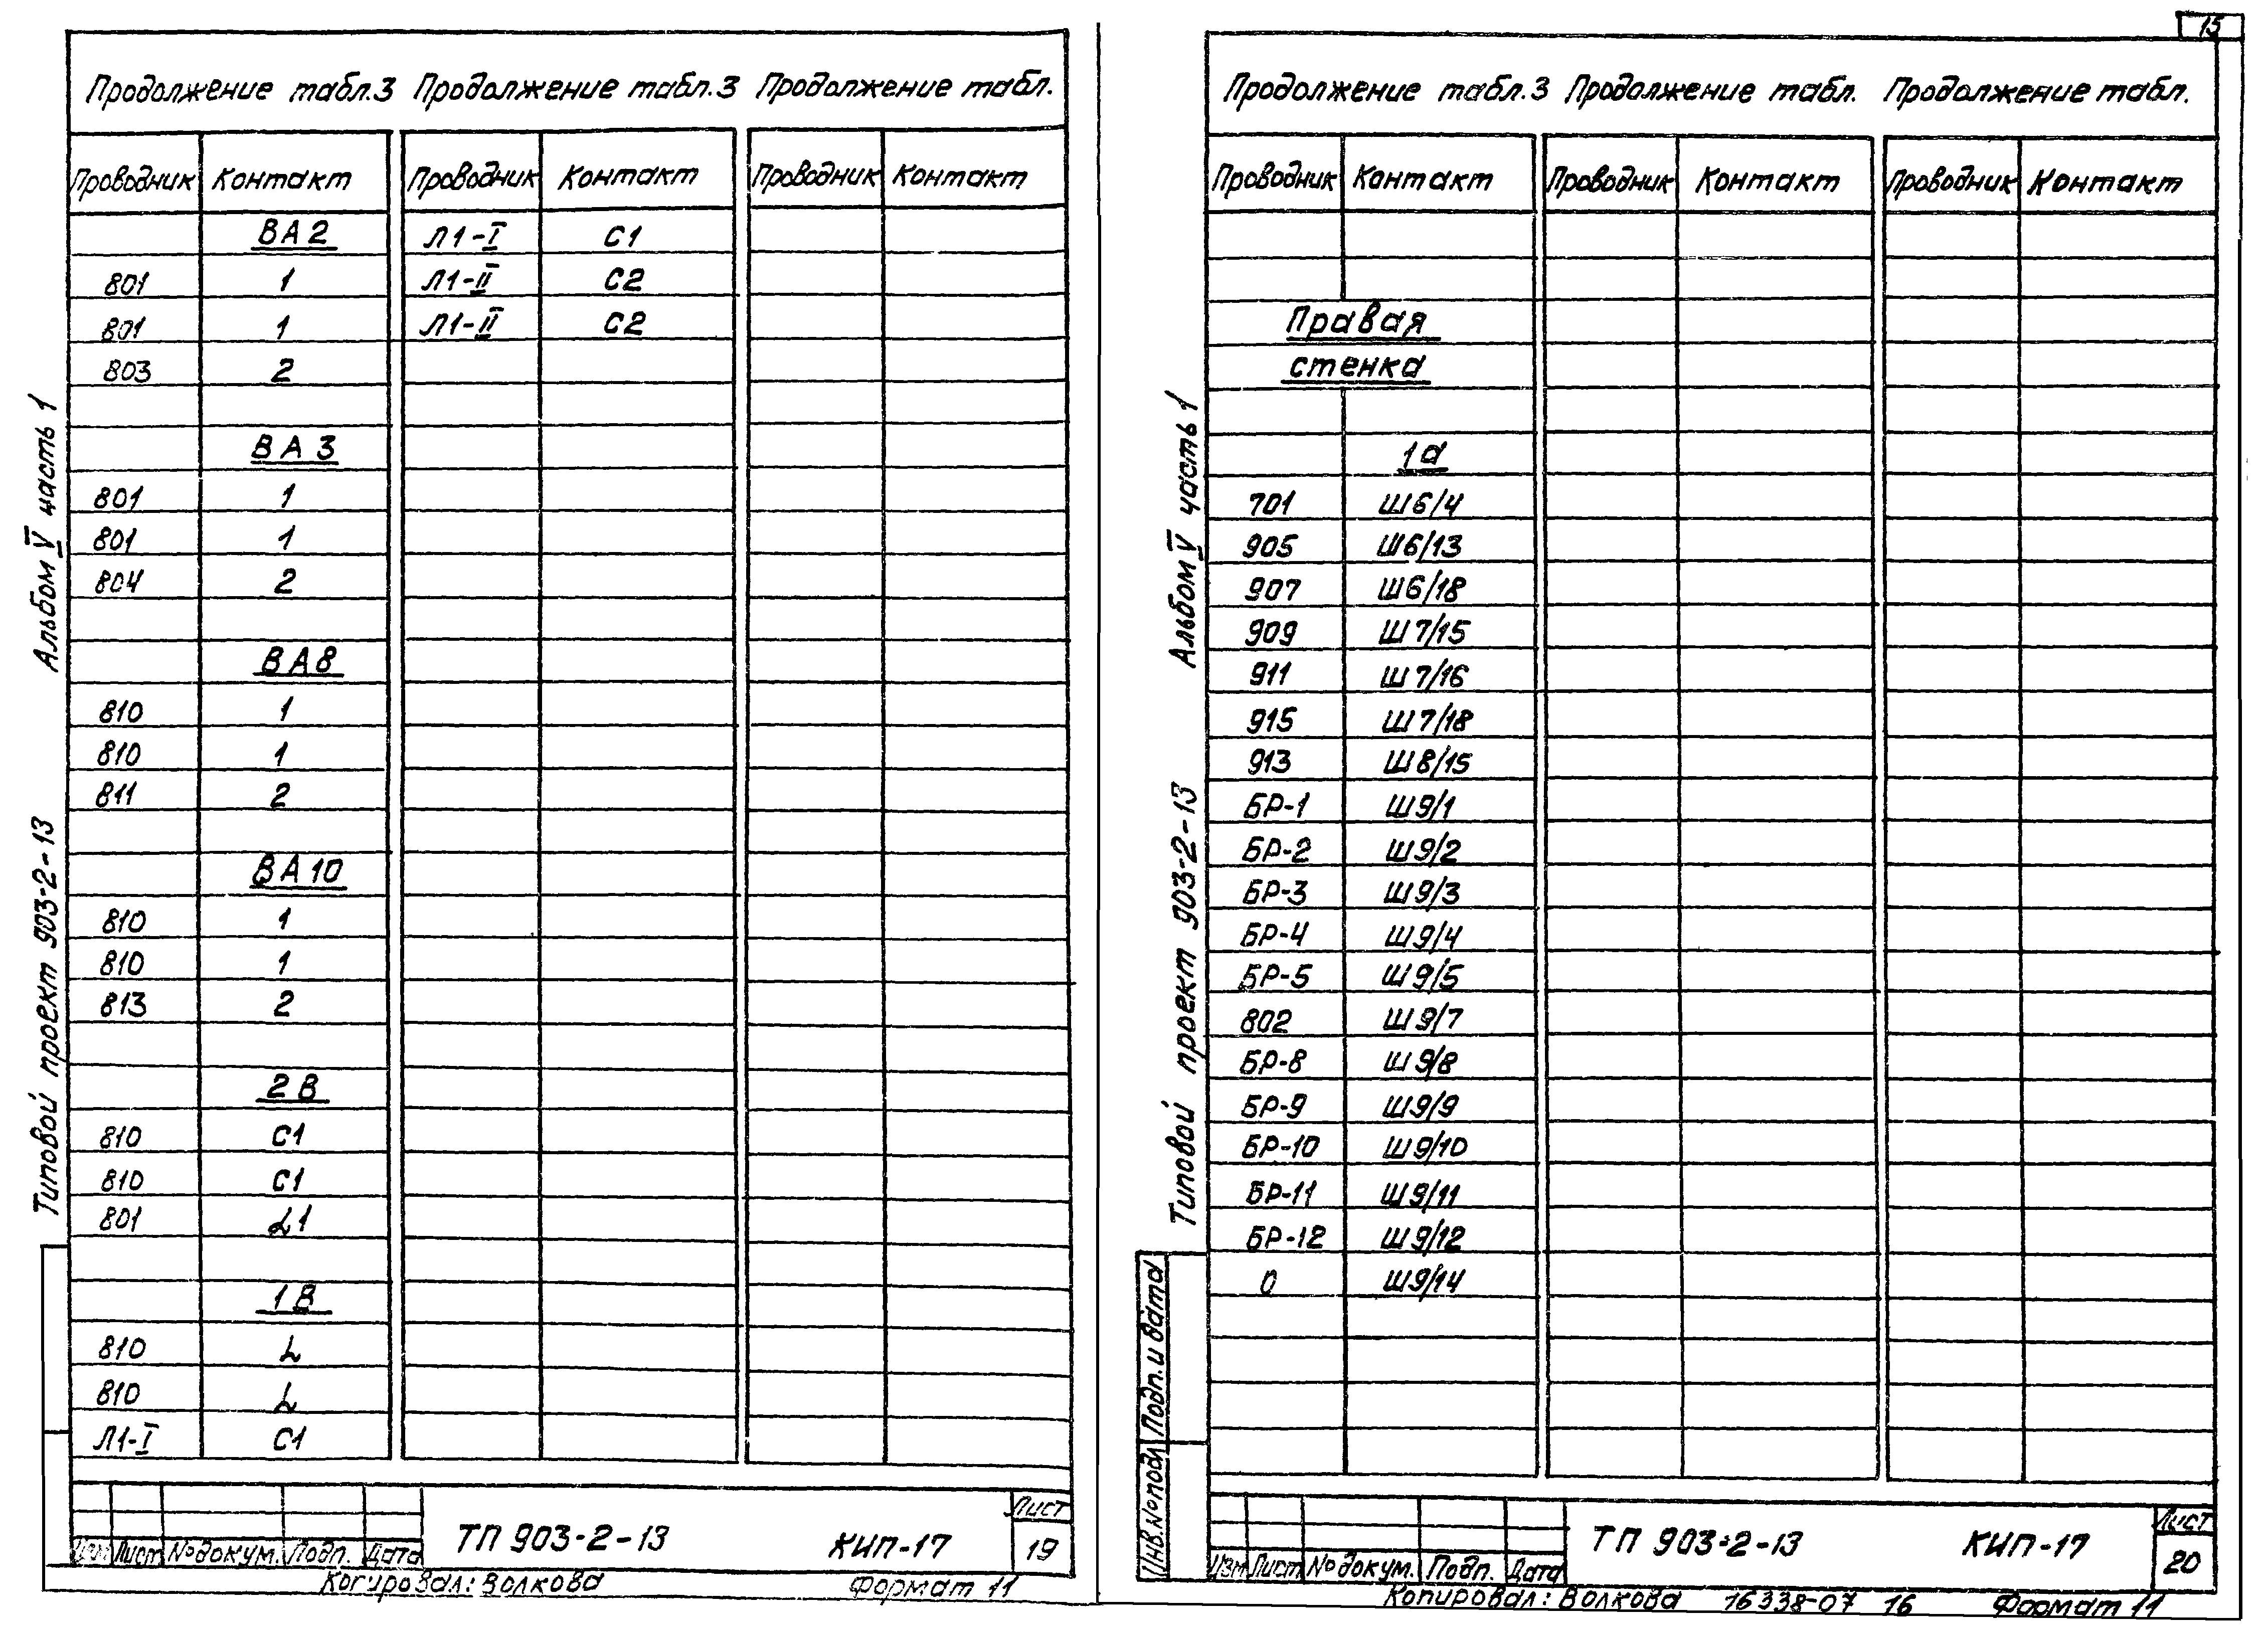 Продолжение табл.3 Продолжение табл.3 Продолжение табл.
Проводник Контакт Проводник Контакт Проводник Контакт
ВА2 Л1-I С1
801 1 Л1-II С2
801 1 Л1-II С2
803 2
ВА3
801 1
801 1
804 2
ВА8
810 1
810 1
811 2
ВА10
810 1
810 1
813 2
2В
810 С1
810 С1
801 L1
1В
810 L
810 L
Л1-I С1
Альбом V часть 1
Типовой проект 903-2-13
Изм Лист № докум. Подп. Дата
ТП 903-2-13 КИП-17
Лист
19
Копировал: Волкова Формат 11
15
Продолжение табл.3 Продолжение табл. Продолжение табл.
Проводник Контакт Проводник Контакт Проводник Контакт
Правая
стенка
1а
701 Ш6/4
905 Ш6/13
907 Ш6/18
909 Ш7/15
911 Ш7/16
915 Ш7/18
913 Ш8/15
БР-1 Ш9/1
БР-2 Ш9/2
БР-3 Ш9/3
БР-4 Ш9/4
БР-5 Ш9/5
802 Ш9/7
БР-8 Ш9/8
БР-9 Ш9/9
БР-10 Ш9/10
БР-11 Ш9/11
БР-12 Ш9/12
0 Ш9/14
Альбом V часть 1
Типовой проект 903-2-13
Подп. и дата
Инв.№ подл
Изм Лист № докум. Подп. Дата
ТП 903-2-13 КИП-17
Лист
20
Копировал: Волкова 16338-07 16 Формат 11